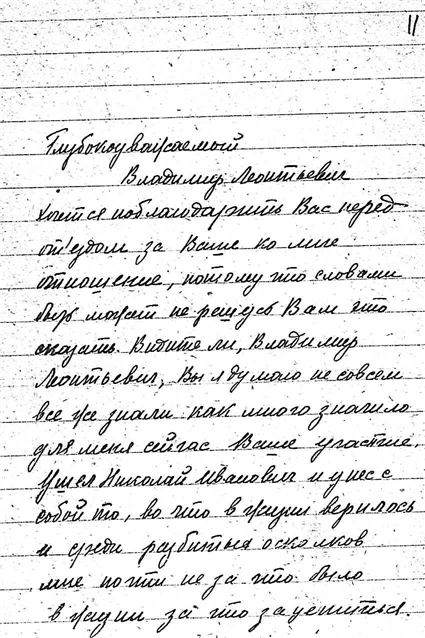 11
Глубокоуважаемый
Владимир Леонтьевич
хочется поблагодарить Вас перед
от'ездом за Ваше ко мне
отношение, потому что словами
быть может не решусь Вам это
сказать. Видите ли, Владимир
Леонтьевич, Вы я думаю не совсем
все же знали как много значило
для меня сейчас Ваше участие.
Ушел Николай Иванович и унес с
собой то, во что в жизни верилось
и среди разбитых осколков
мне почти не за что было
в жизни за что зацепиться.